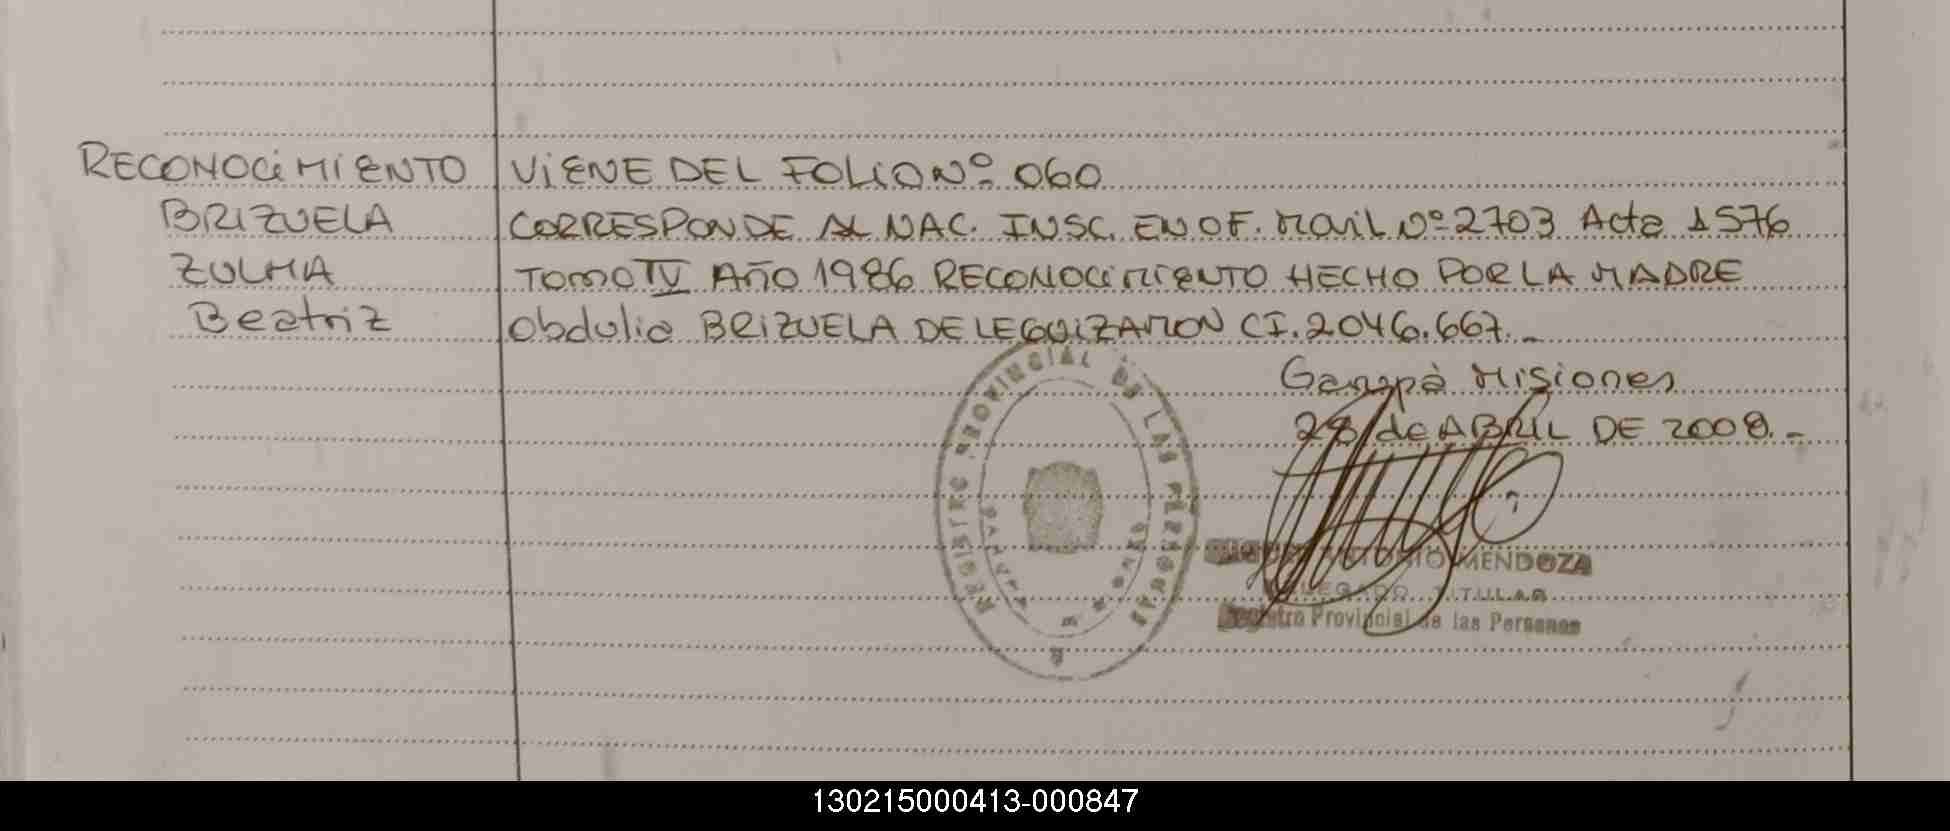 RECONOCIMIENTO VIENE DEL FOLIO Nº 060
BRIZUELA CORRESPONDE AL NAC. INSC. EN OF. MOVIL Nº 2703 Acta 1576
ZULMA TOMO IV AÑO 1986 RECONOCIMIENTO HECHO POR LA MADRE
Beatriz Obdulia BRIZUELA DE LEGUIZAMON CI. 2046.667.-
Garupà Misiones
28 de ABRIL DE 2008.-
REGISTRO PROVINCIAL DE LAS PERSONAS
ANTONIO MENDOZA
DELEGADO TITULAR
Registro Provincial de las Personas
130215000413-000847